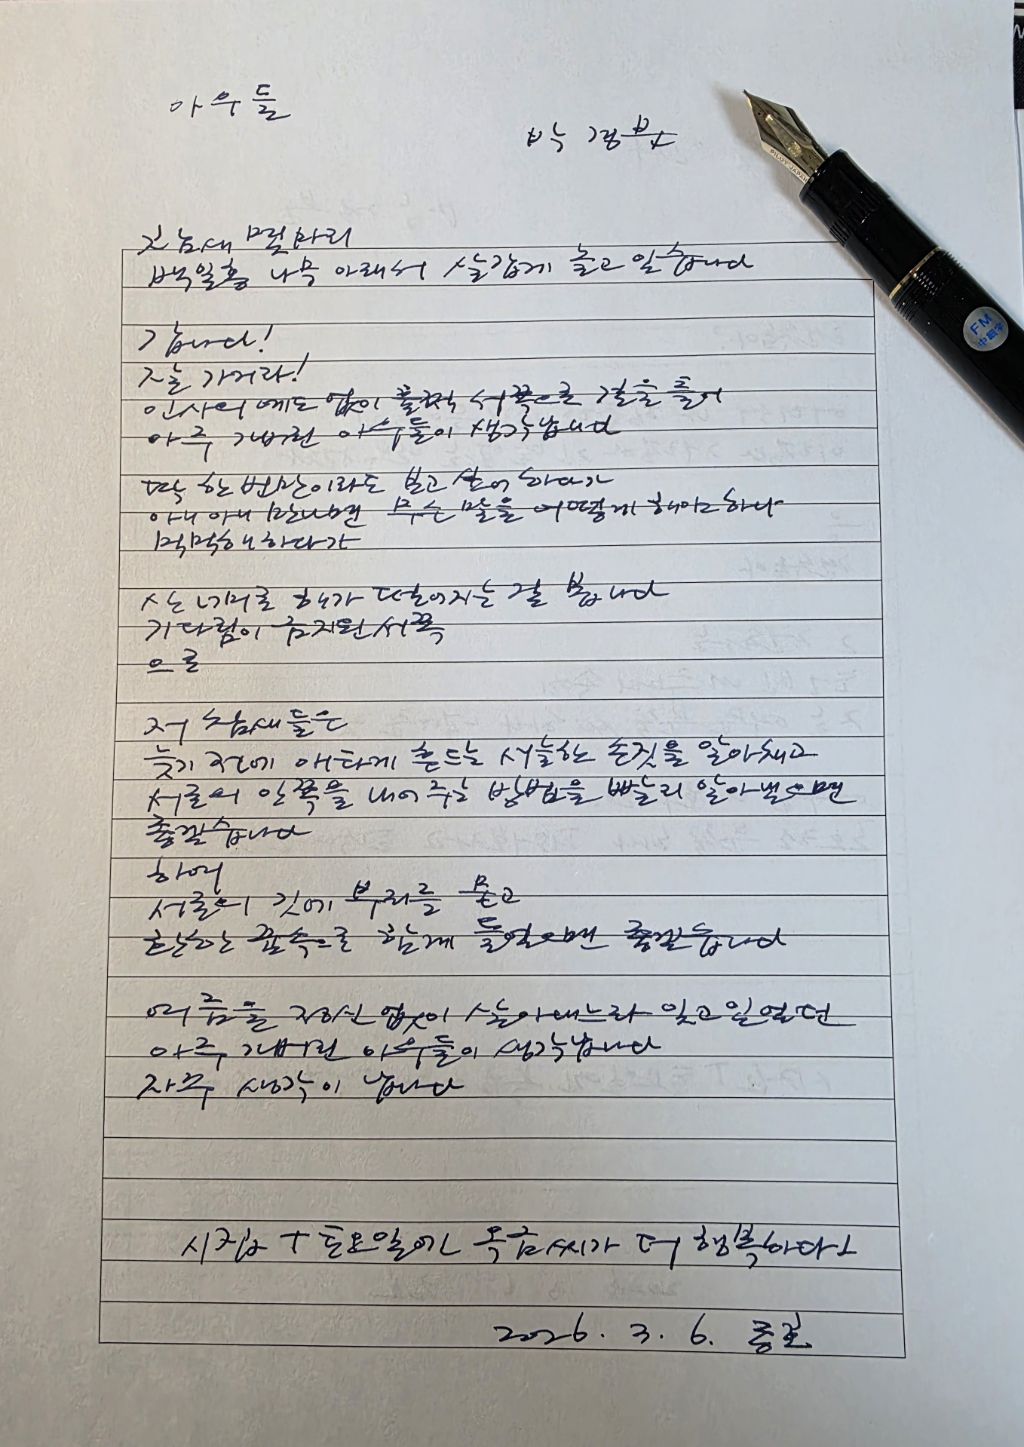 아우들
박경분
참새 몇마리
백일홍 나무 아래서 살갑게 놀고 있습니다
갑니다!
잘 가거라!
인사의 예도 없이 훌쩍 서쪽으로 길을 틀어
아주 가버린 아우들이 생각납니다
딱 한번만이라도 보고 싶어 하다가
아니 아니 만나면 무슨 말을 어떻게 해야 하나
먹먹해 하다가
산 너머로 해가 떨어지는 걸 봅니다
기다림이 금지된 서쪽
으로
저 참새들은
늦기 전에 애타게 흔드는 서늘한 손짓을 알아채고
서로의 안쪽을 내어 주는 방법을 빨리 알아냈으면
좋겠습니다
하여
서로의 깃에 부리를 묻고
환한 꿈속으로 함께 들었으면 좋겠습니다
여름을 정신 없이 살아내느라 잊고 있었던
아주 가버린 아우들이 생각납니다
자주 생각이 납니다
시집 토요일엔 목금씨가 더 행복하다
2026. 3. 6.
PILOT JAPAN
FM
中細字